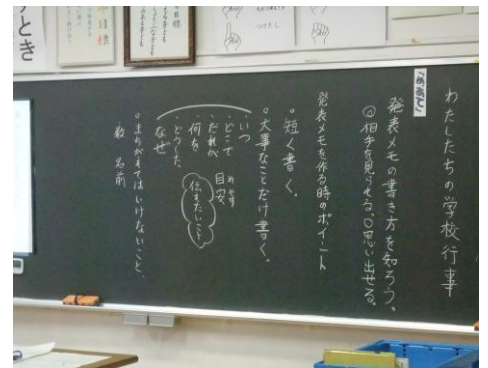 わたしたちの学校行事
めあて
発表メモの書き方を知ろう。
◎相手を見られる。○思い出せる。
発表メモを作る時のポイント
・短く書く。
・大事なことだけ書く。
・いつ
・どこで
・だれが
・何を
・どうした
なぜ
めやす
目安
伝えたいこと
・まちがえてはいけないこと。
数 名前
とき
目標